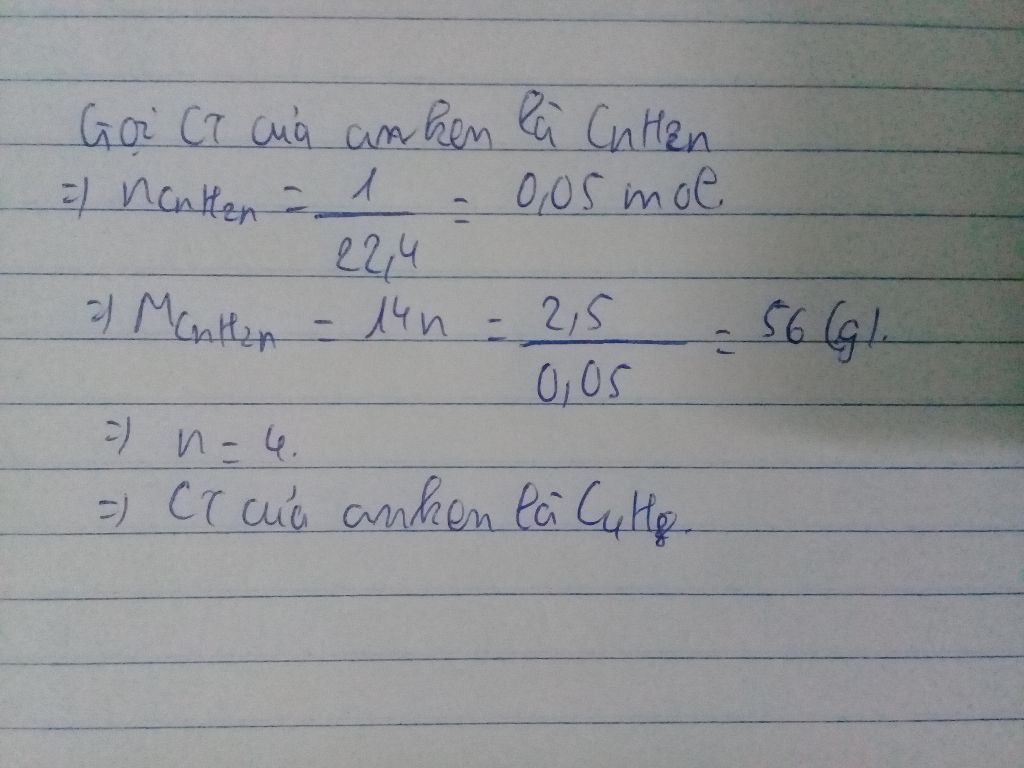 Gọi CT của anken là CnH2n
=) nCnH2n = 1/22,4 = 0,05 mol
=) MCnH2n = 14n = 2,5/0,05 = 56 (g).
=) n = 4.
=) CT của anken là C4H8.